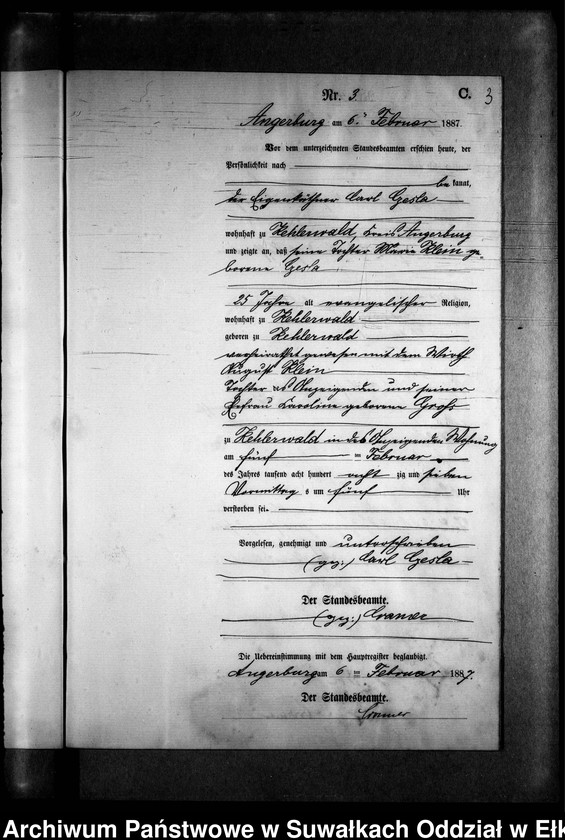 Nr. 3. C. 3
Angerburg am 6. Februar 1887.
Vor dem unterzeichneten Standesbeamten erschien heute, der
Persönlichkeit nach
be kannt,
der Eigenkäthner Carl Gesla
wohnhaft zu Kehlerwald, Kreis Angerburg
und zeigte an, daß seine Tochter Marie Klein ge
borene Gesla
25 Jahre alt evangelischer Religion,
wohnhaft zu Kehlerwald
geboren zu Kehlerwald
verheirathet gewesen mit dem Wirth
August Klein
Tochter des Anzeigenden und seiner
Ehefrau Caroline geborene Groß
zu Kehlerwald in des Anzeigenden Wohnung
am fünf ten Februar
des Jahres tausend acht hundert acht zig und sieben
Vormittag s um fünf Uhr
verstorben sei.
Vorgelesen, genehmigt und unterschrieben
(gez:) Carl Gesla
Der Standesbeamte.
(gez:) Cramer
Die Uebereinstimmung mit dem Hauptregister beglaubigt.
Angerburg am 6 ten Februar 1887.
Der Standesbeamte.
Cramer
Archiwum Państwowe w Suwałkach Oddział w Ełk